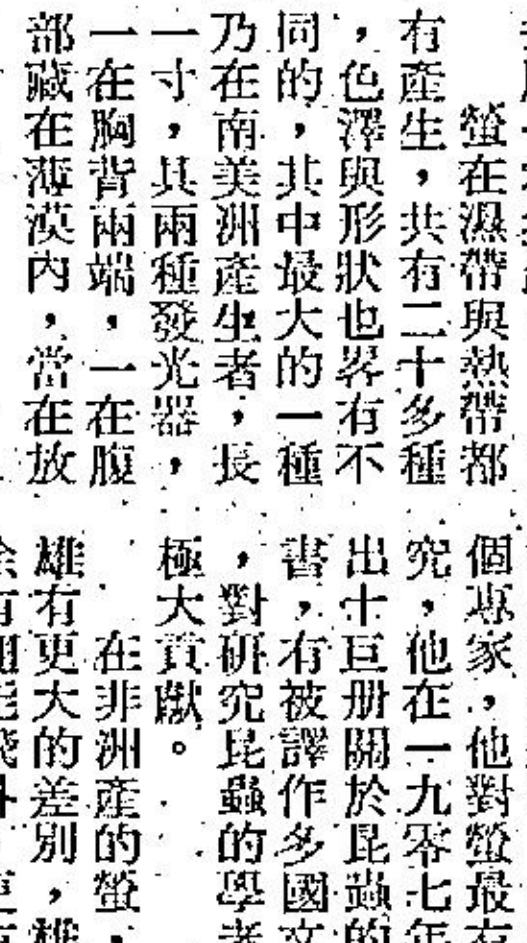 螢在濕帶與熱帶都
有產生，共有二十多種
，色澤與形狀也畧有不
同的，其中最大的一種
乃在南美洲產生者，長
一寸，具兩種發光器，
一在胸背兩端，一在腹
部藏在薄漠內，當在放
個專家，他對螢最有
究，他在一九零七年
出十巨册關於昆蟲的
書，有被譯作多國文
，對研究昆蟲的學者
極大貢獻。
在非洲產的螢，
雄有更大的差別，雄